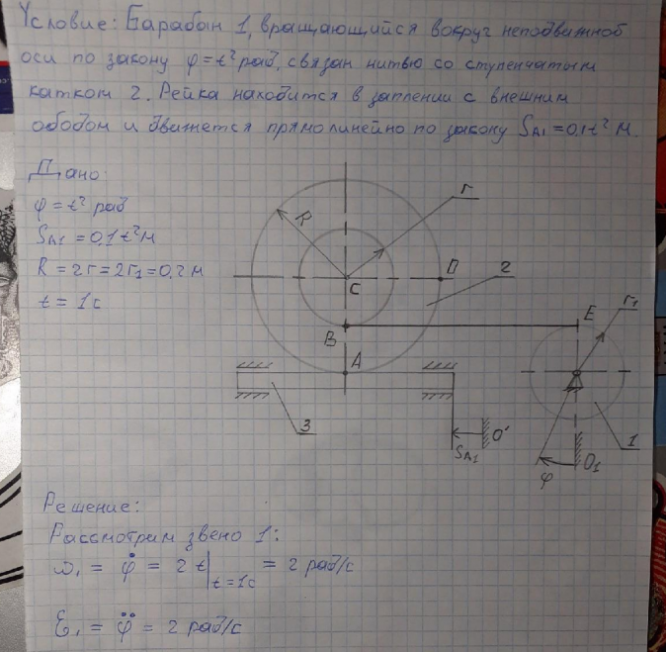 Условие: Барабан 1, вращающийся вокруг неподвижной
оси по закону φ=t² рад, связан нитью со ступенчатым
катком 2. Рейка находится в зацплении с внешним
ободом и движется прямолинейно по закону S_A1 = 0,1t² м.
Дано:
φ = t² рад
S_A1 = 0,1t² м
R = 2r = 2r₁ = 0,2 м
t = 1 с
R
r
C
D
2
B
E
r₁
A
3
S_A1
O'
φ
O₁
1
Решение:
Рассмотрим звено 1:
ω₁ = φ̇ = 2t|t=1c = 2 рад/с
ε₁ = φ̈ = 2 рад/с